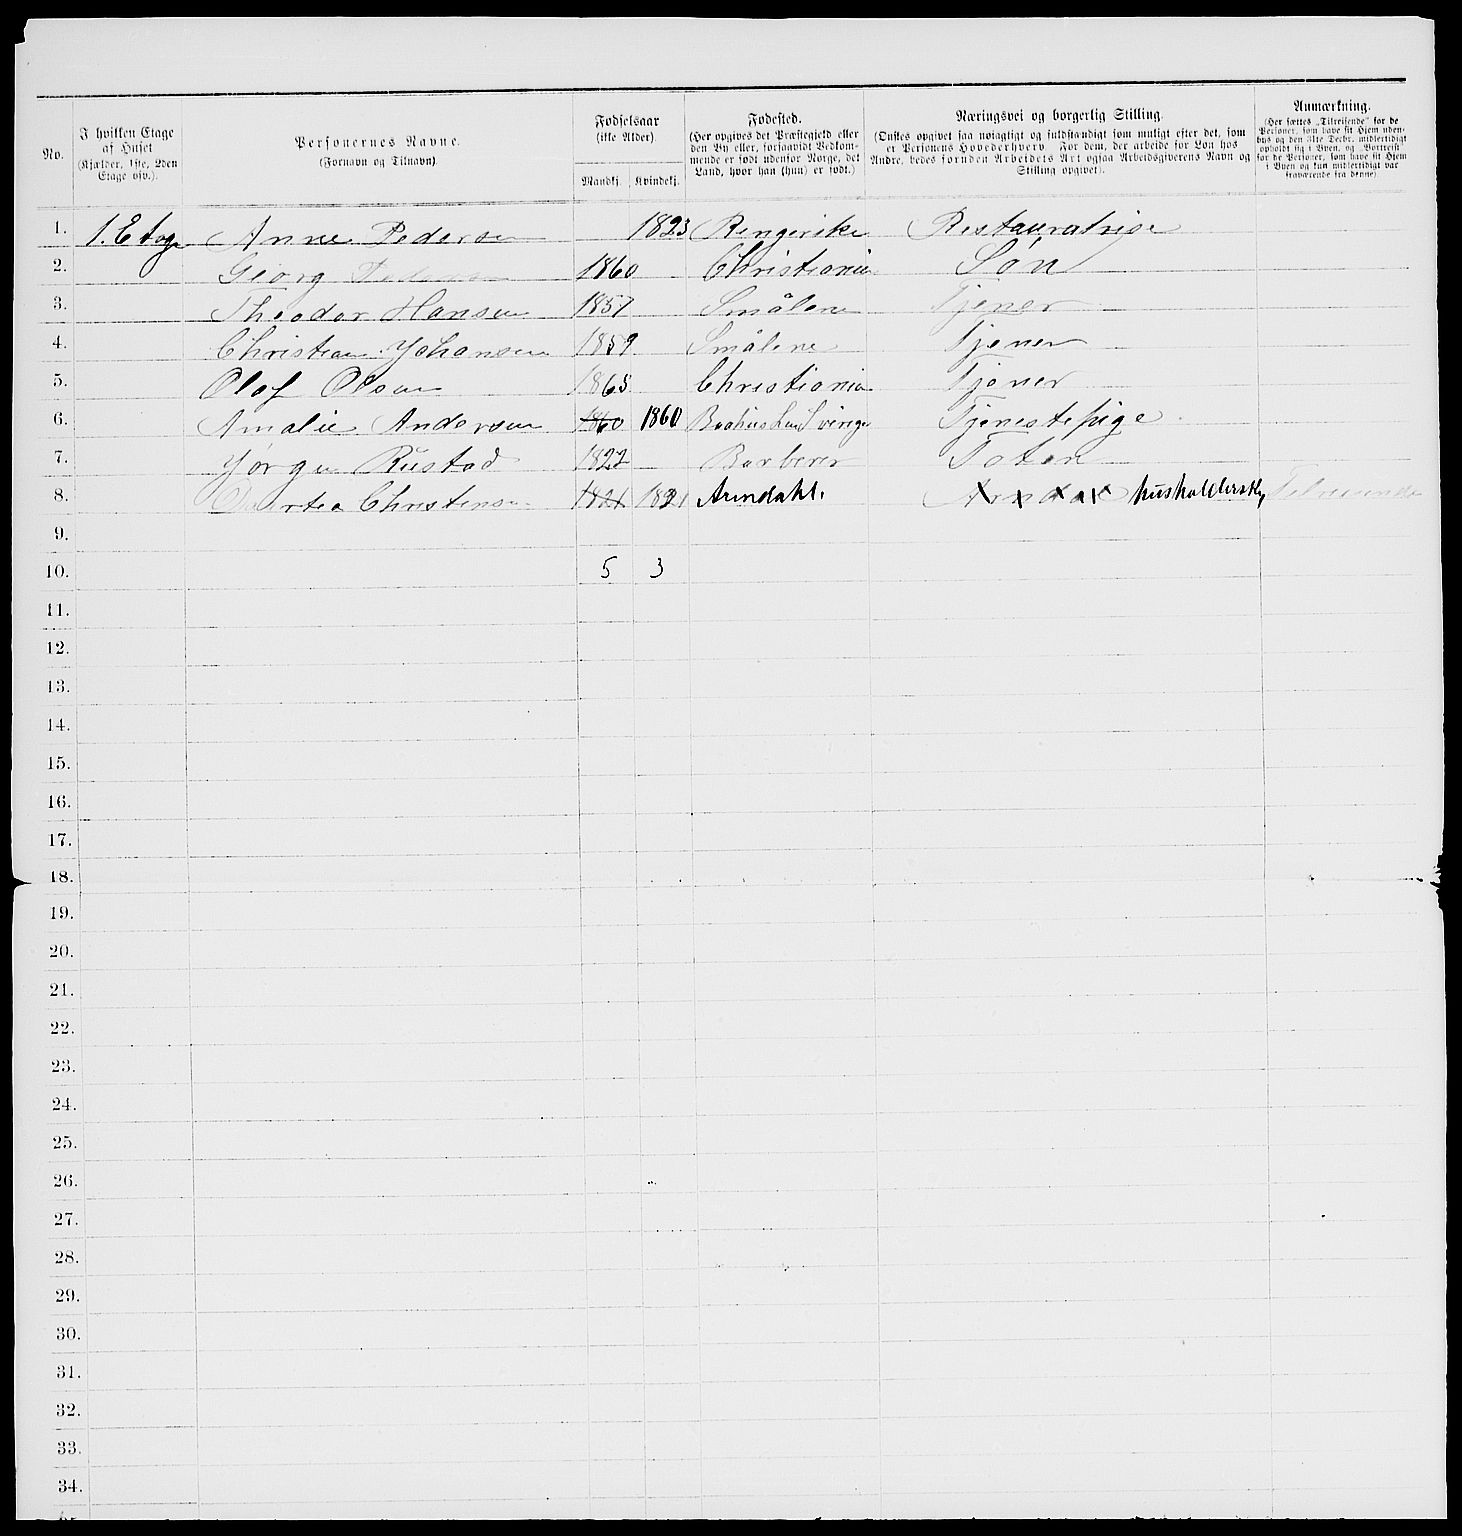 No.
I hvilken Etage af Huset (Kjælder, 1ste, 2den Etage osv.).
Personernes Navne. (Fornavn og Tilnavn).
Fødselsaar (ikke Alder). Mandkj. Kvindekj.
Fødested. (Her opgives det Præstegjeld eller den By eller, forsaavidt Vedkommende er født udenfor Norge, det Land, hvor han (hun) er født.)
Næringsvei og borgerlig Stilling. (Ønskes opgivet saa nøiagtigt og fuldstændigt som muligt efter det, som er Personens Hovederhverv. For dem, der arbeide for Løn hos Andre, bedes foruden Arbeidets Art ogsaa Arbeidsgiverens Navn og Stilling opgivet).
Anmærkning. (Her sættes „Tilreisende" for de Personer, som have sit Hjem udenbys og den 31te Decbr. midlertidigt opholdt sig i Byen, og „Bortreist" for de Personer, som have sit Hjem i Byen og kun midlertidigt var fraværende fra denne).
1. 1. Etage Anne Pedersen 1823 Ringerike Restauratrise
2. Georg Pedersen 1860 Christiania Søn
3. Theodor Hansen 1857 Smålene Tjener
4. Christian Johansen 1859 Smålene Tjener
5. Olaf Olsen 1865 Christiania Tjener
6. Amalie Andersen 1860 1860 Tjenestepige
7. Jørgen Rustad 1822 Barberer Toten
8. Christensen 1821 1821 Arendahl. Arndal husholderske
9.
10. 5 3
11.
12.
13.
14.
15.
16.
17.
18.
19.
20.
21.
22.
23.
24.
25.
26.
27.
28.
29.
30.
31.
32.
33.
34.